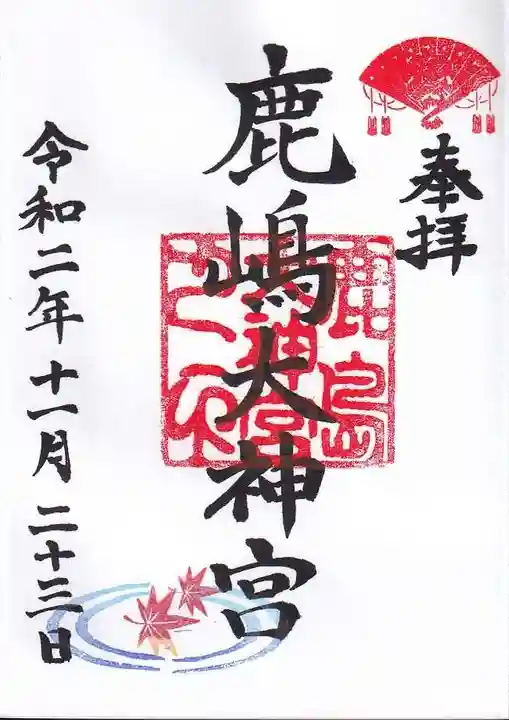 奉拝
鹿嶋大神宮
鹿島
神宮
令和二年十一月二十三日